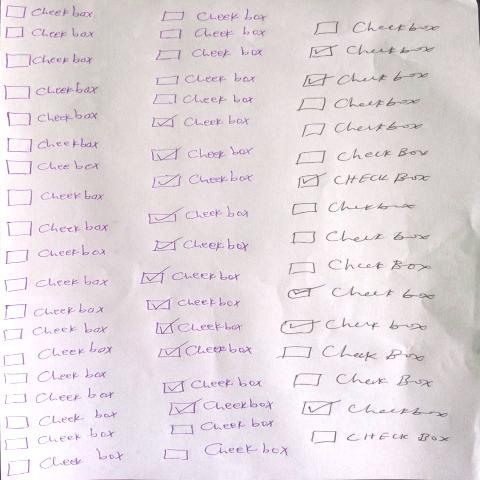 Check box
Check box
Check box
Check box
Check box
Check box
Check box
Check box
Check box
Check box
Check box
Check box
Check box
Check box
Check box
Check box
Check box
Check box
Check box
Check box
Check box
Check box
Check box
Check box
Check box
Check box
Check box
Check box
Check box
Check box
Check box
Check box
Check box
Check box
Checkbox
Check box
Check box
Checkbox
Check box
Check box
Check box
Checkbox
Check Box
CHECK Box
Check box
Check box
Check Box
Check box
Check box
Check Box
Check Box
Checkbox
CHECK BOX